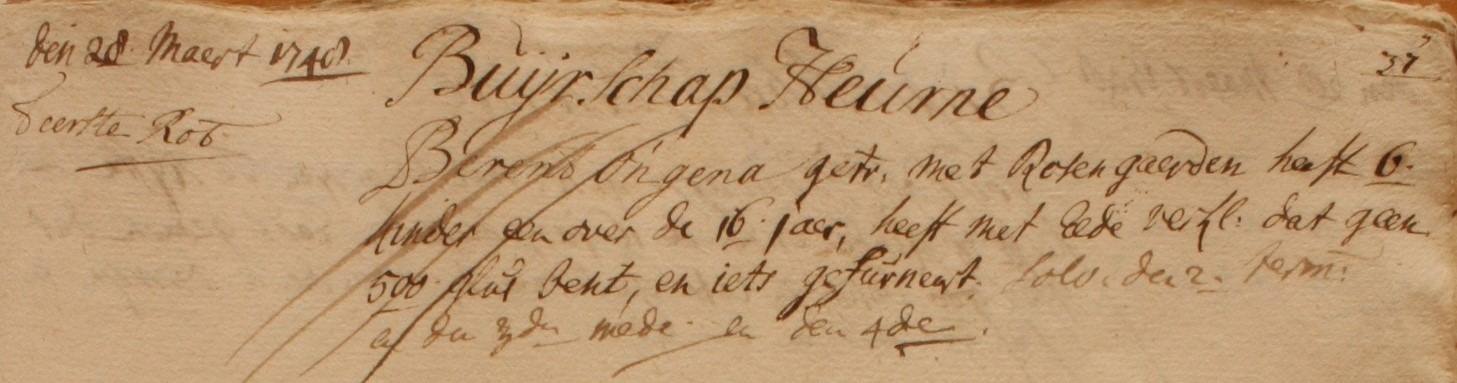 den 28 Maert 1748.
37
Buijrschap Heurne
d'eerste Rot
Berent Ongena getr. met Rosengaerden heeft 6.
kinder een over de 16. jaer, heeft met Eede verkl: dat geen
500 glds besit, en iets gefurneert. Solv. den 2. term:
en den 3den mede en den 4de.